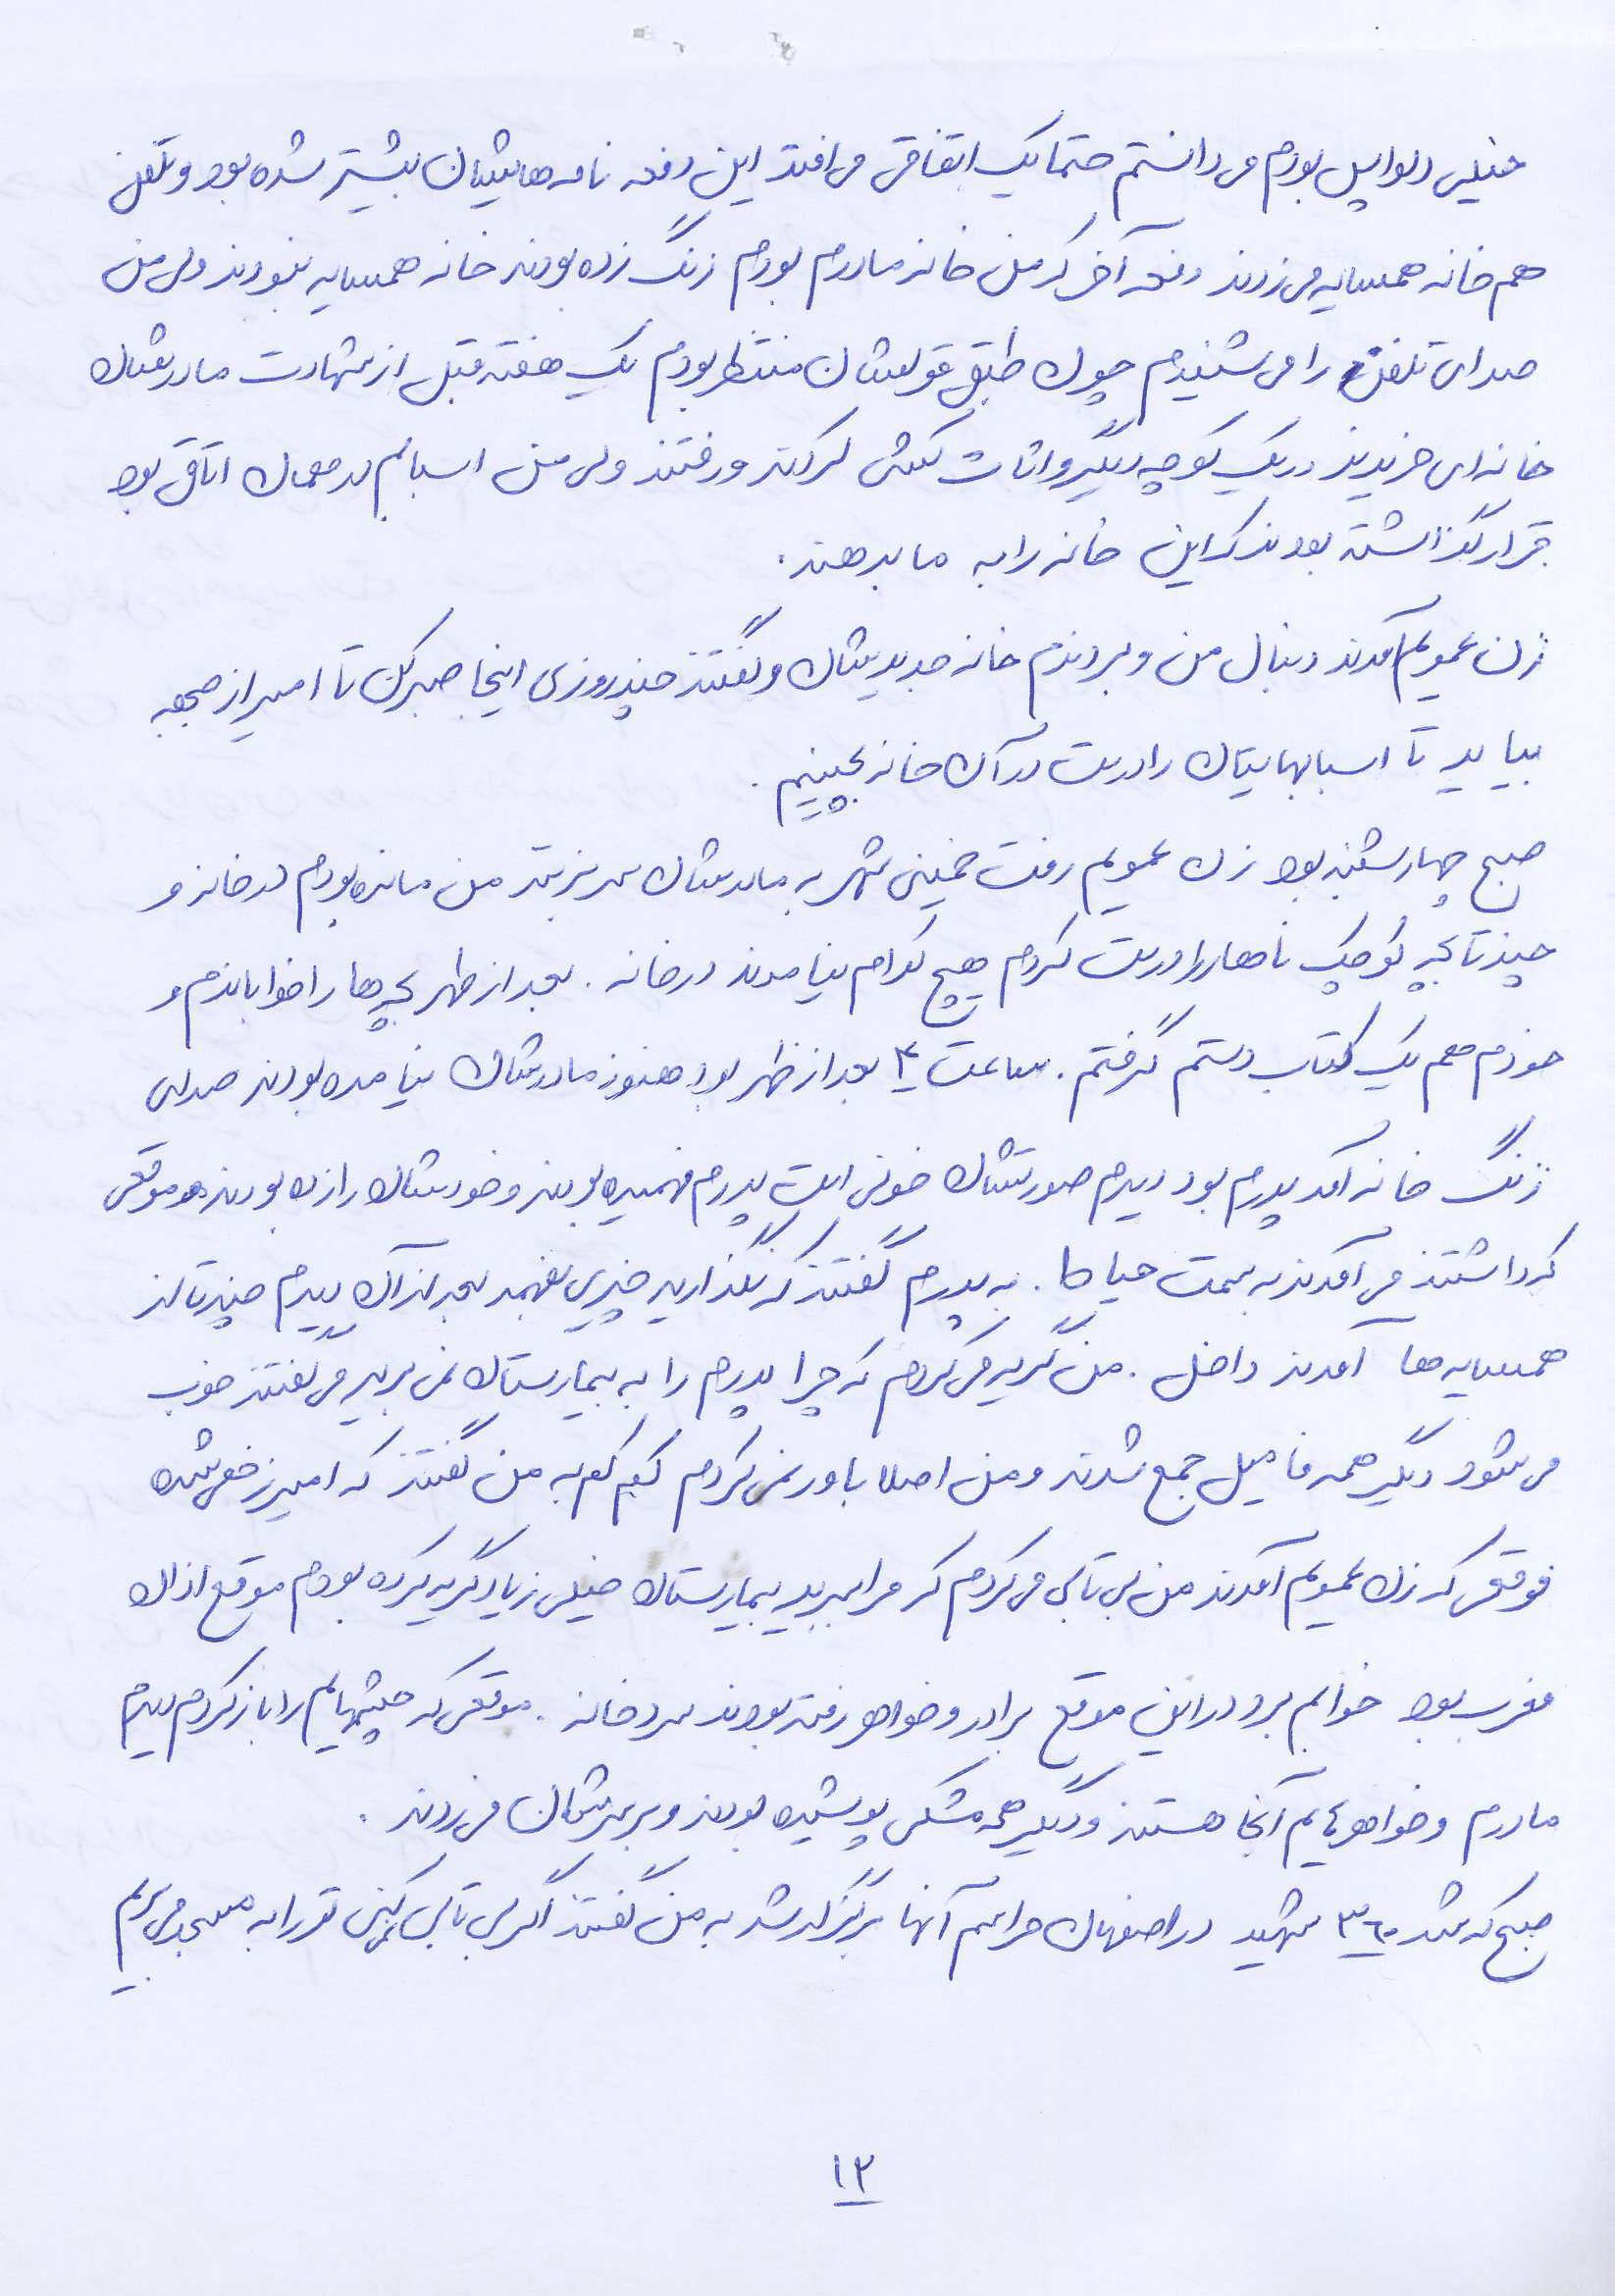 خیلی دلواپس بودم می دانستم حتما یک اتفاقی می افتد این دفعه نامه هایشان بیشتر شده بود و تلفن
هم خانه همسایه می زدند دفعه آخر که من خانه مادرم بودم زنگ زده بودند خانه همسایه نبودند ولی من
صدای تلفن را می شنیدم چون طبق قولشان منتظر بودم یک هفته قبل از شهادت مادرشان
خانه ای خریدند در یک کوچه دیگر و اثاث کشی کردند و رفتند ولی من اسبابم در همان اتاق بود
قرار گذاشته بودند که این خانه را به ما بدهند.
زن عمویم آمدند دنبال من و بردندم خانه جدیدشان و گفتند چند روزی اینجا صبر کن تا امیر از جبهه
بیاید تا اسبابهایتان را درست در آن خانه بچینیم.
صبح چهارشنبه بود زن عمویم رفت خمینی شهر به مادرشان سر بزند من مانده بودم در خانه و
چند تا بچه کوچک ناهار را درست کردم هیچ کدام نیامدند در خانه. بعد از ظهر بچه ها را خواباندم و
خودم هم یک کتاب دستم گرفتم. ساعت ۴ بعد از ظهر بود هنوز مادرشان نیامده بودند صدای
زنگ خانه آمد پدرم بود دیدم صورتشان خونی است پدرم فهمیده بودند و خودشان را زده بودند موقعی
که داشتند می آمدند به سمت حیاط. به پدرم گفتند که نگذارید چیزی بفهمد بعد از آن دیدم چند تا از
همسایه ها آمدند داخل. من گریه می کردم که چرا پدرم را به بیمارستان نمی برید می گفتند خوب
می شود دیگر همه فامیل جمع شدند و من اصلا باور نمی کردم کم کم به من گفتند که امیر زخمی شده
موقعی که زن عمویم آمدند من بی تابی می کردم که مرا ببرید بیمارستان خیلی زیاد گریه کرده بودم موقع اذان
مغرب بود خوابم برد در این موقع برادر و خواهر رفته بودند سردخانه. موقعی که چشمهایم را باز کردم دیدم
مادرم و خواهرهایم آنجا هستند و دیگر همه مشکی پوشیده بودند و بر سرشان می زدند.
صبح که شد ۳۶۰ شهید در اصفهان مراسم آنها برگزار شد به من گفتند اگر بی تابی نکنی تو را به مسجد می بریم
۱۲